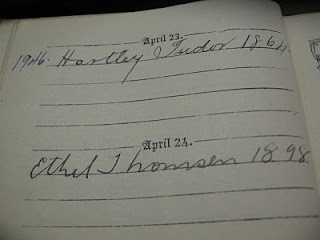 April 23.
1946. Hartley Tudor 1864
April 24.
Ethel Thomsen 1898